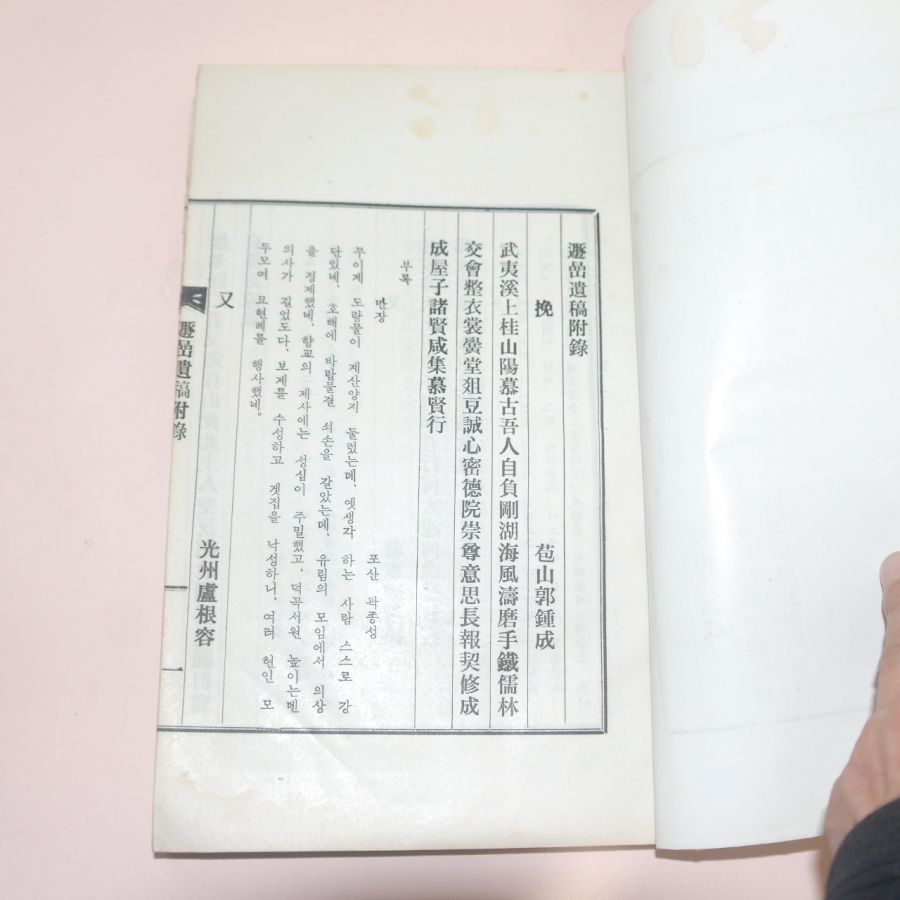 遯嵒遺稿附錄
挽 苞山郭鍾成
武夷溪上桂山陽慕古吾人自負剛湖海風濤磨手鐵儒林
交會整衣裳黌堂俎豆誠心密德院崇尊意思長報契修成
成屋子諸賢咸集慕賢行
부록
만장 포산 곽종성
무이계 도랑물이 계산양지 둘렀는데, 옛생각 하는 사람 스스로 강
단있네. 호해에 바람물결 쇠손을 갈았는데, 유림의 모임에서 의상
을 정제했네. 향교의 제사에는 성심이 주밀했고, 덕곡서원 높이는덴
의사가 길었도다. 보계를 수성하고 겟집을 낙성하니, 여러 현인 모
두모여 모현례를 행사했네.
又 光州盧根容
遯嵒遺稿附錄 一